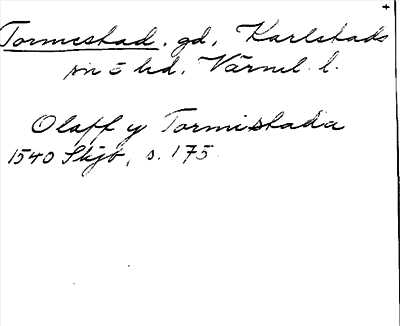 +
Tormestad, gd, Karlstads
sn o hd. Värml. l.
Olaff y Tormistada
1540 Skjb, s. 175